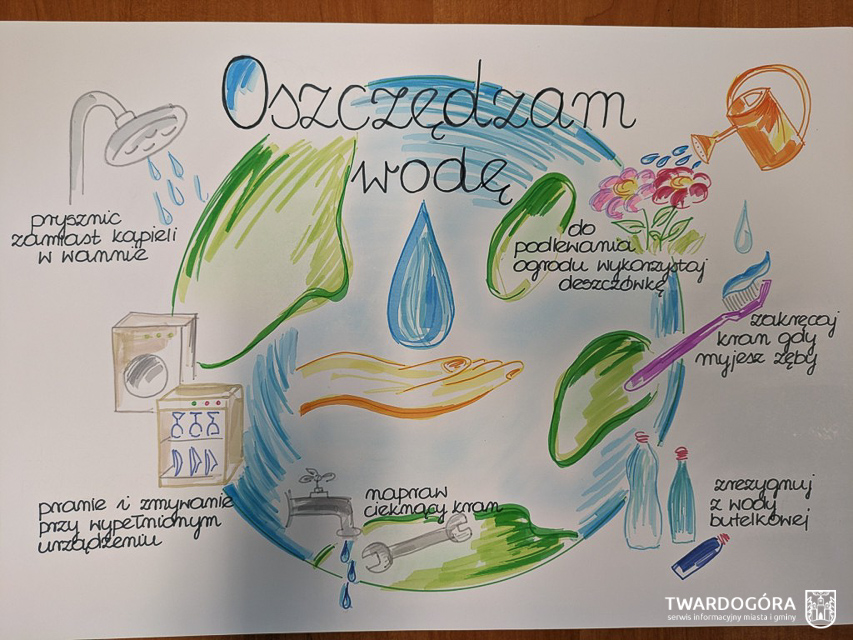 Oszczędzam
wodę
prysznic
zamiast kąpieli
w wannie
do
podlewania
ogrodu wykorzystaj
deszczówkę
zakręcaj
kran gdy
myjesz zęby
pranie i zmywanie
przy wypełnionym
urządzeniu
napraw
cieknący kran
zrezygnuj
z wody
butelkowej
TWARDOGÓRA
serwis informacyjny miasta i gminy